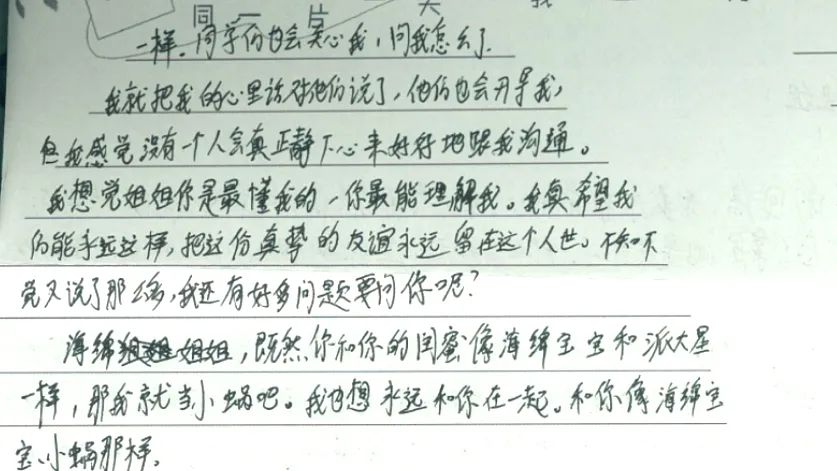 同一片
一样。同学们也会关心我，问我怎么了。
我就把我的心里话对他们说了，他们也会开导我，
但我感觉没有一个人会真正静下心来好好地跟我沟通。
我想觉姐姐你是最懂我的，你最能理解我。我真希望我
们能永远这样，把这份真挚的友谊永远留在这个人世。不知不
觉又说了那么多，我还有好多问题要问你呢？
海绵姐姐，既然你和你的闺蜜像海绵宝宝和派大星
一样，那我就当小蜗吧。我也想永远和你在一起。和你像海绵宝
宝、小蜗那样。